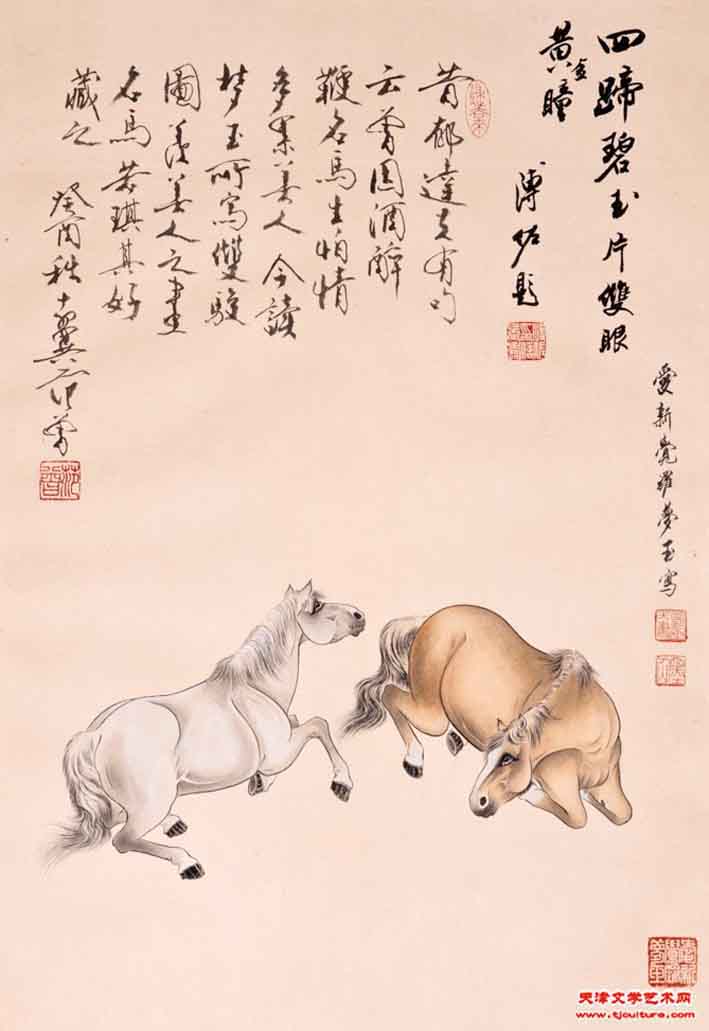 四蹄碧玉片雙眼
黄金瞳
溥佐題
愛新覺羅夢玉寫
昔郁達夫有句
云曾因酒醉
鞭名馬生怕情
多累美人今讀
夢玉所寫雙駿
圖羨美人之畫
名馬若琪其好
藏之
癸酉秋十翼范曾
天津文学艺术网
www.tjculture.com